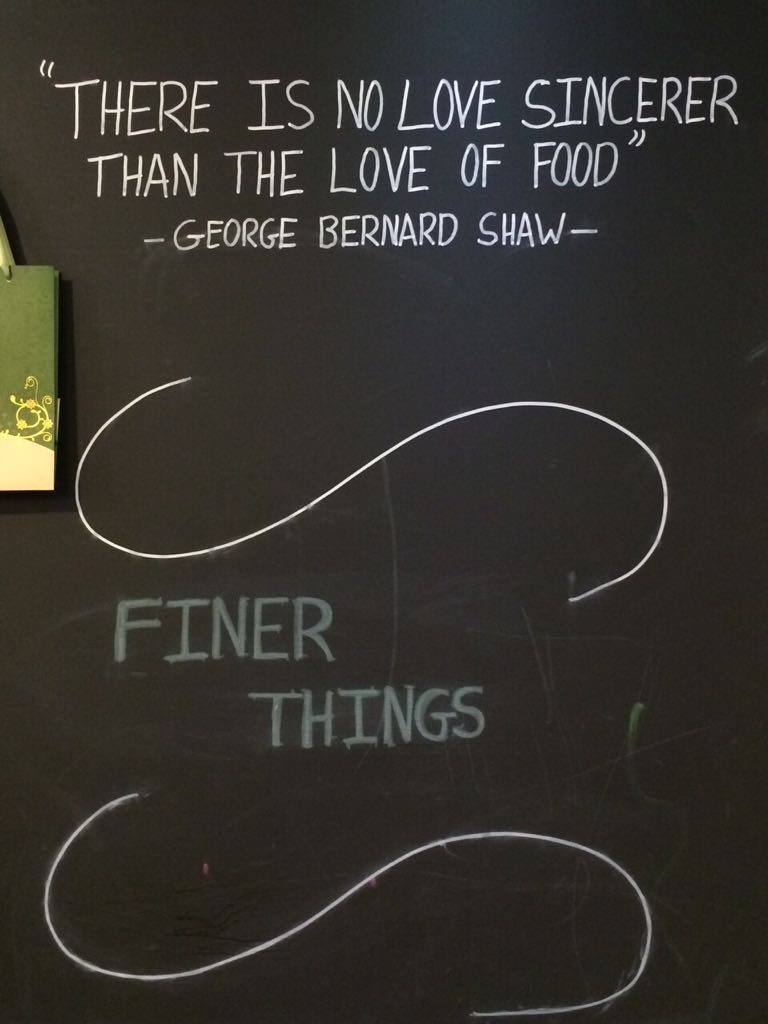 "THERE IS NO LOVE SINCERER
THAN THE LOVE OF FOOD"
- GEORGE BERNARD SHAW -
FINER
THINGS